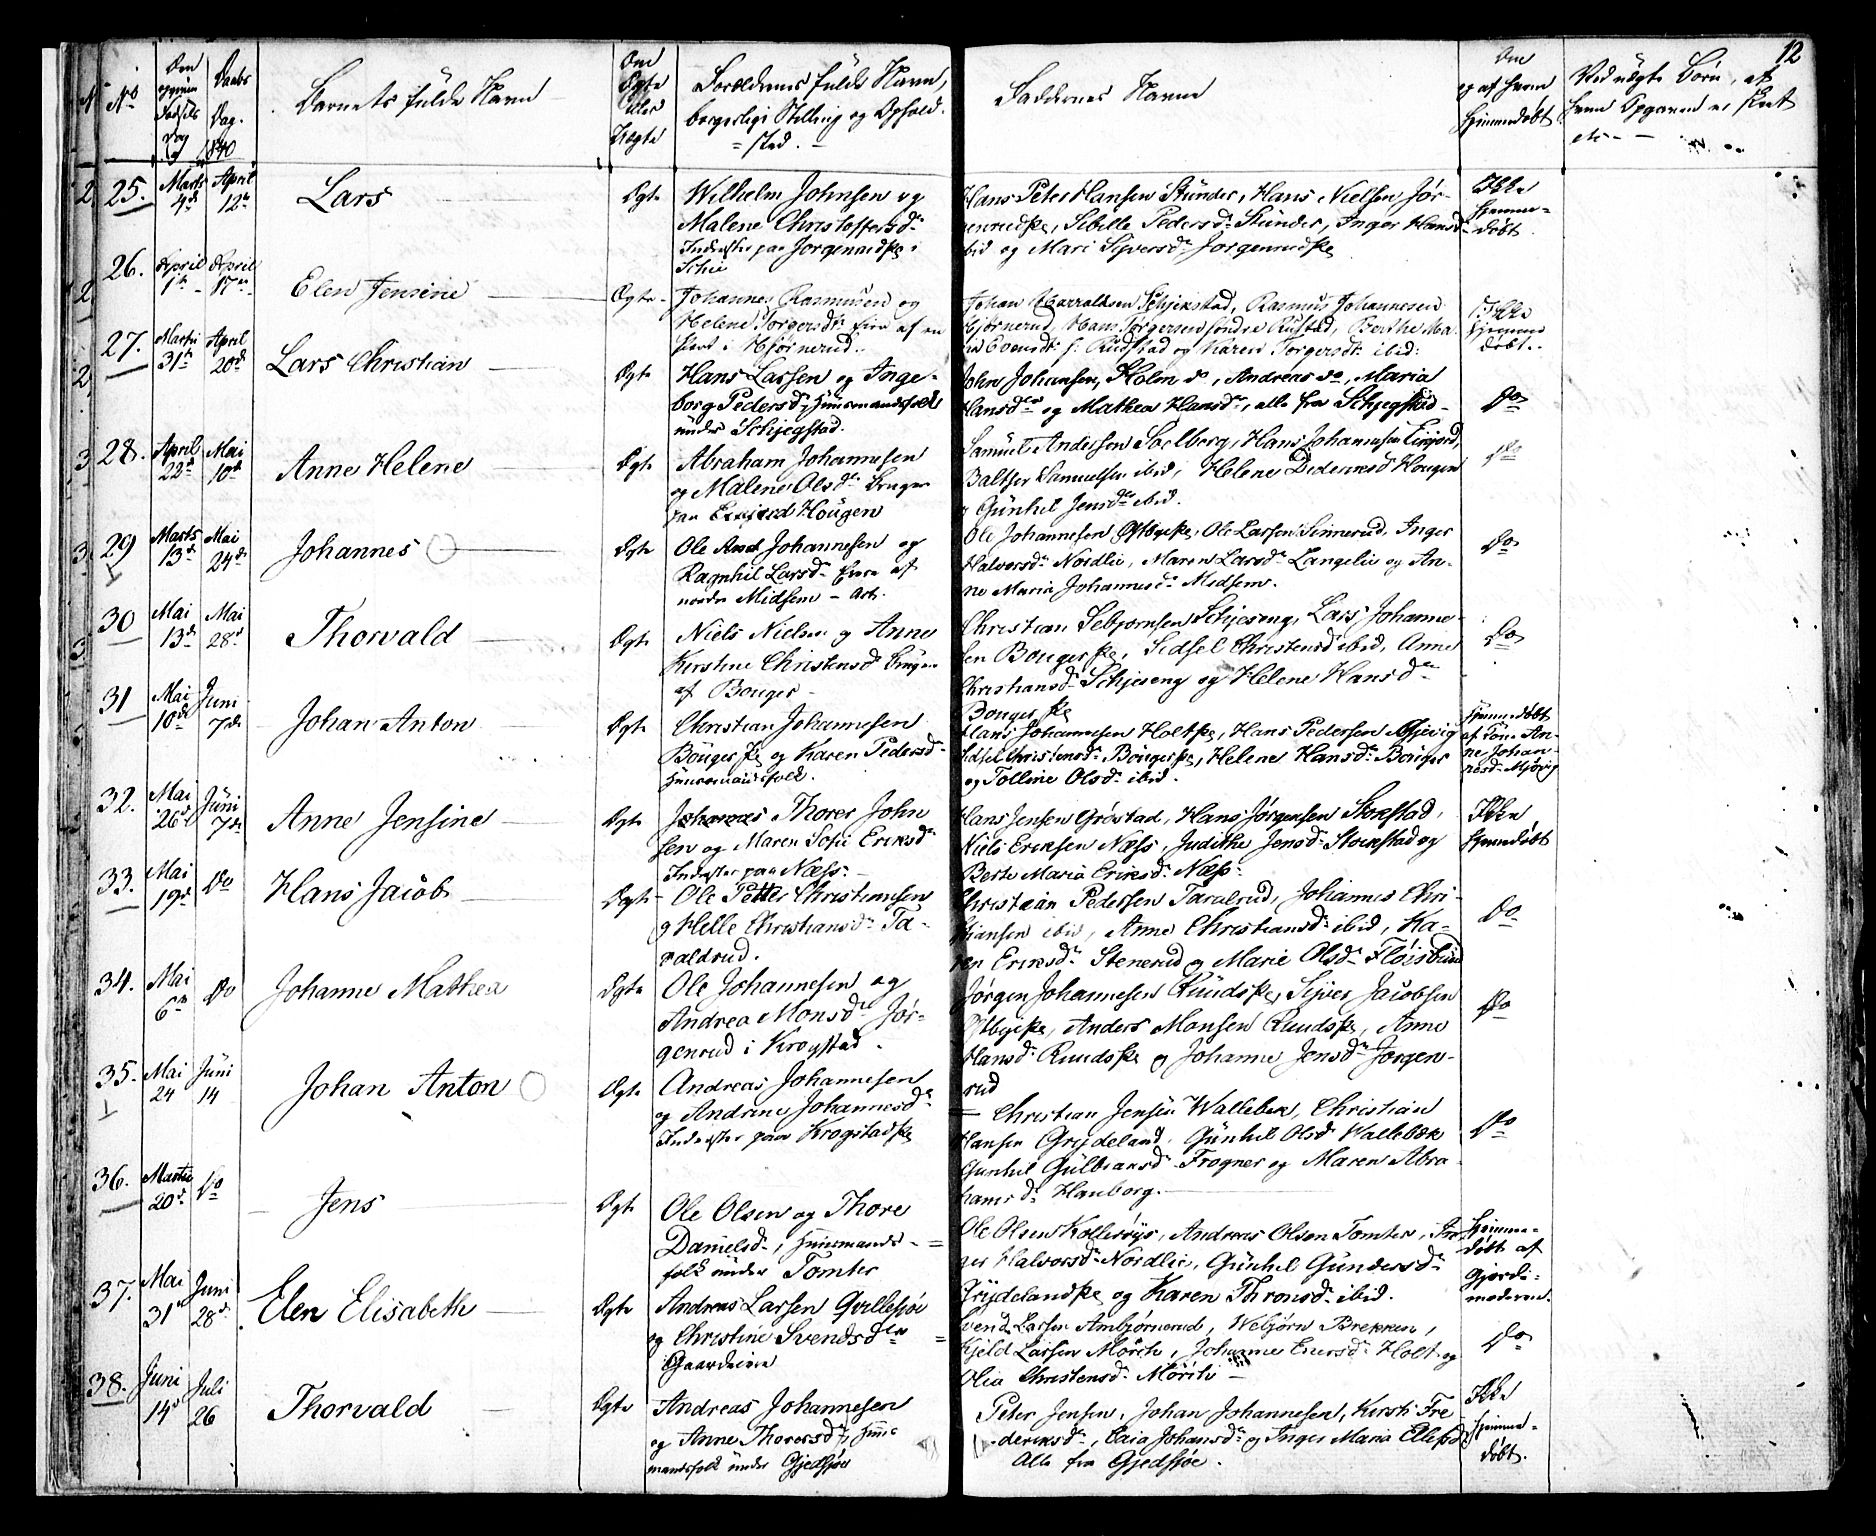 12
No
Den
Daabs
Dag.
1840
Barnets fulde Navn
Om
Ægte
eller
Uægte
Forældrenes fulde Navn,
borgerlige Stilling og Ophold.
sted.
Faddernes Navne
Om
og af hvem
hjemmedøbt
Ved uægte Børn, af
hvem Opgaven er skeet
25. Marts 4de April 12te Lars Ægte
Wilhelm Johnsen og
Malene Christoffersd.
Inderster paa Jørgenrudske i
Schie
Hans Peter Hansen Stunder, Hans Nielsen Jør-
genrudske, Sibille Pedersd. Stunder, Inger Hansd.
ibid og Mari Siversd. Jørgenrudske
Ikke
hjemme-
døbt.
26. April 1te April 17de Elen Jensine Ægte
Johannes Rasmusen og
Helene Torgersdt. Eier af en
Part i Hjørnerud.
Johan Harraldsen Schjekstad, Rasmus Johannesen
Hjørnerud, Hans Torgersen søndre Rustad, Berthe Ma-
ibid:
Ikke
hjemme
døbt.
27. Martii 31te April 20de Lars Christian Ægte
Hans Larsen og Inge-
borg Pedersd., Huusmandsfolk
under Schjegstad.
John Johansen, Holm do, Andreas do, Maria
Hansd. og Mathea Hansd., alle fra Schjegstad
Do
28. April 22de Mai 10de Anne Helene Ægte
Abraham Johannesen
og Malene Olsd. Bruger
paa Hougen
Samuel Andersen Solberg, Hans Johannesen
Baltser Samuelsen ibid, Helene Hougen
og Gunhil Jensd. ibid.
Do
29 Marts 13de Mai 24de Johannes Ægte
Ole Johannesen og
Ragnhil Larsd. Eiere af
nordre Midsem - Arb.
Ole Johannesen Østbyeske, Ole Larsen Sinnerud, Inger
Halvorsd. Nordlie, Maren Larsd. Langelie og An-
ne Maria Johannesd. Midsem.
Do
30 Mai 13de Mai 28de Thorvald Ægte
Niels Nielsen og Anne
Kirstine Christensd. Bruger
af Bouger
Christian Sebjørnsen Schjeseng, Lars Johanne-
sen Bougerske, Sidsel Christensd. ibid, Anne
Christiansd. Schjeseng og Helene Hansd.
Bougerske
Do
31 Mai 10de Juni 7de Johan Anton Ægte
Christian Johannesen
Bougerske og Karen Pedersd.
Huusmandsfolk.
Hans Johannesen Holtske, Hans Pedersen Gjevig
Sidsel Christensd. Bougerske, Helene Hansd. Bouger
og Tolline Olsd. ibid.
Hjemmedøbt
af An-
ne Johan-
nesd. Mjøvig
32. Mai 26de Juni 7de Anne Jensine Ægte
Thorer John
sen og Maren Sofie Eriksd.
Inderster paa Næss.
Hans Jensen Grøstad, Hans Jørgensen Storstad,
Niels Eriksen Næss, Judithe Jensd. Storkstad og
Berte Maria Eriksd. Næss.
Ikke
hjemmedøbt
33. Mai 19de Do Hans Jacob Ægte
Ole Petter Christiansen
og Helle Christiansd. Ta-
raldrud.
Christian Pedersen Taralrud, Johannes Chri-
stiansen ibid, Anne Christiansd. ibid, Ka-
ren Eriksd. Stenerud og Marie Olsd. Fløisbud
Do
34. Mai 6te Do Johanne Mathea Ægte
Ole Johannesen og
Andrea Monsd. Jør-
genrud i Krogstad.
Jørgen Johannesen Ruudske, Siver Jacobsen
Østbyeske, Anders Monsen Ruudske, Anne
Hansd. Ruudske og Johanne Jensd. Jørgen-
rud
Do
35. Mai 24 Juni 14 Johan Anton Ægte
Andreas Johannesen
og Andrine Johannesd.
Inderster paa Krogstadske
Christian Jensen Wallebek, Christian
Hansen Grydeland, Gunhil Olsd. Wallebek
Gunhil Gulbransd. Frogner og Maren Abra-
hamsd. Hauborg.
Do
36. Martii 20de Do Jens Ægte
Ole Olsen og Thore
Danielsd., Huusmands-
folk under Tomter
Ole Olsen Kolterøys, Andreas Olsen Tomter, In-
ger Halvorsd. Nordlie, Gunhil Gundersd.
Frydelandske og Karen Thronsd. ibid.
Hjemme-
døbt af
Gjorde-
moderen.
37. Mai 31te Juni 28de Elen Elisabeth Ægte
Andreas Larsen Gvillesjøe
og Christine Svendsd.
Gaardeiere
Svend Larsen Ambjørnerud, Webjørn Brekken,
Kjeld Larsen Mørch, Johanne Holt og
Olia Christensd. Mørch
Do
38. Juni 14de Juli 26 Thorvald Ægte
Andreas Johannesen
og Anne Thorersd., Huus-
mandsfolk under Gjedsjøe
Peter Jensen, Johan Johannesen, Kirsti Fre-
deriksd., Caia Johansd. og Inger Maria Ellefsd.
Alle fra Gjedsjøe.
Ikke
hjemme-
døbt.